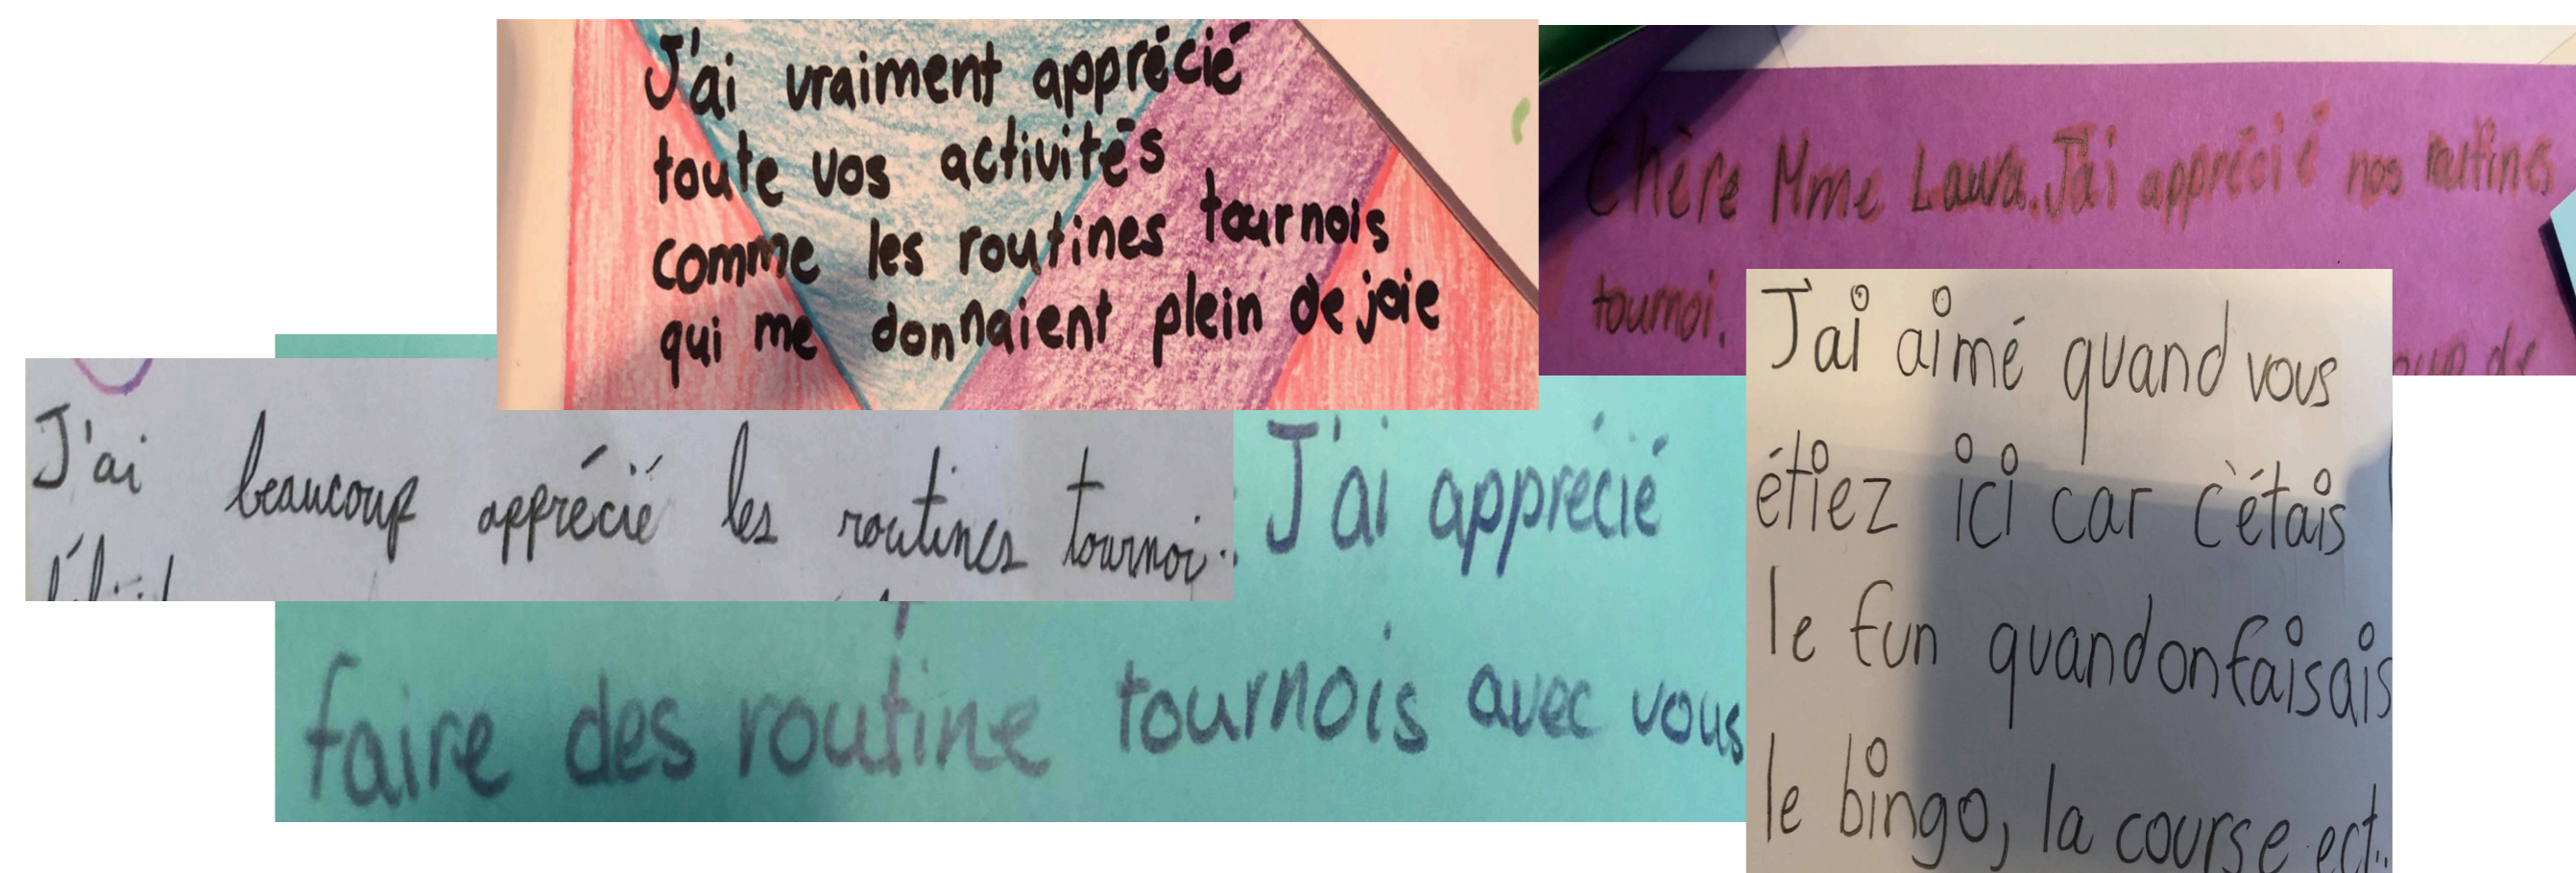 J'ai vraiment apprécié
toute vos activités
comme les routines tournois
qui me donnaient plein de joie
Chère Mme Laura. J'ai apprécié nos routines
tournoi.
J'ai beaucoup apprécié les routines tournoi..
J'ai apprecié
faire des routine tournois avec vous
J'ai aimé quand vous
étiez ici car c'étais
le fun quand on faisais
le bingo, la course ect..